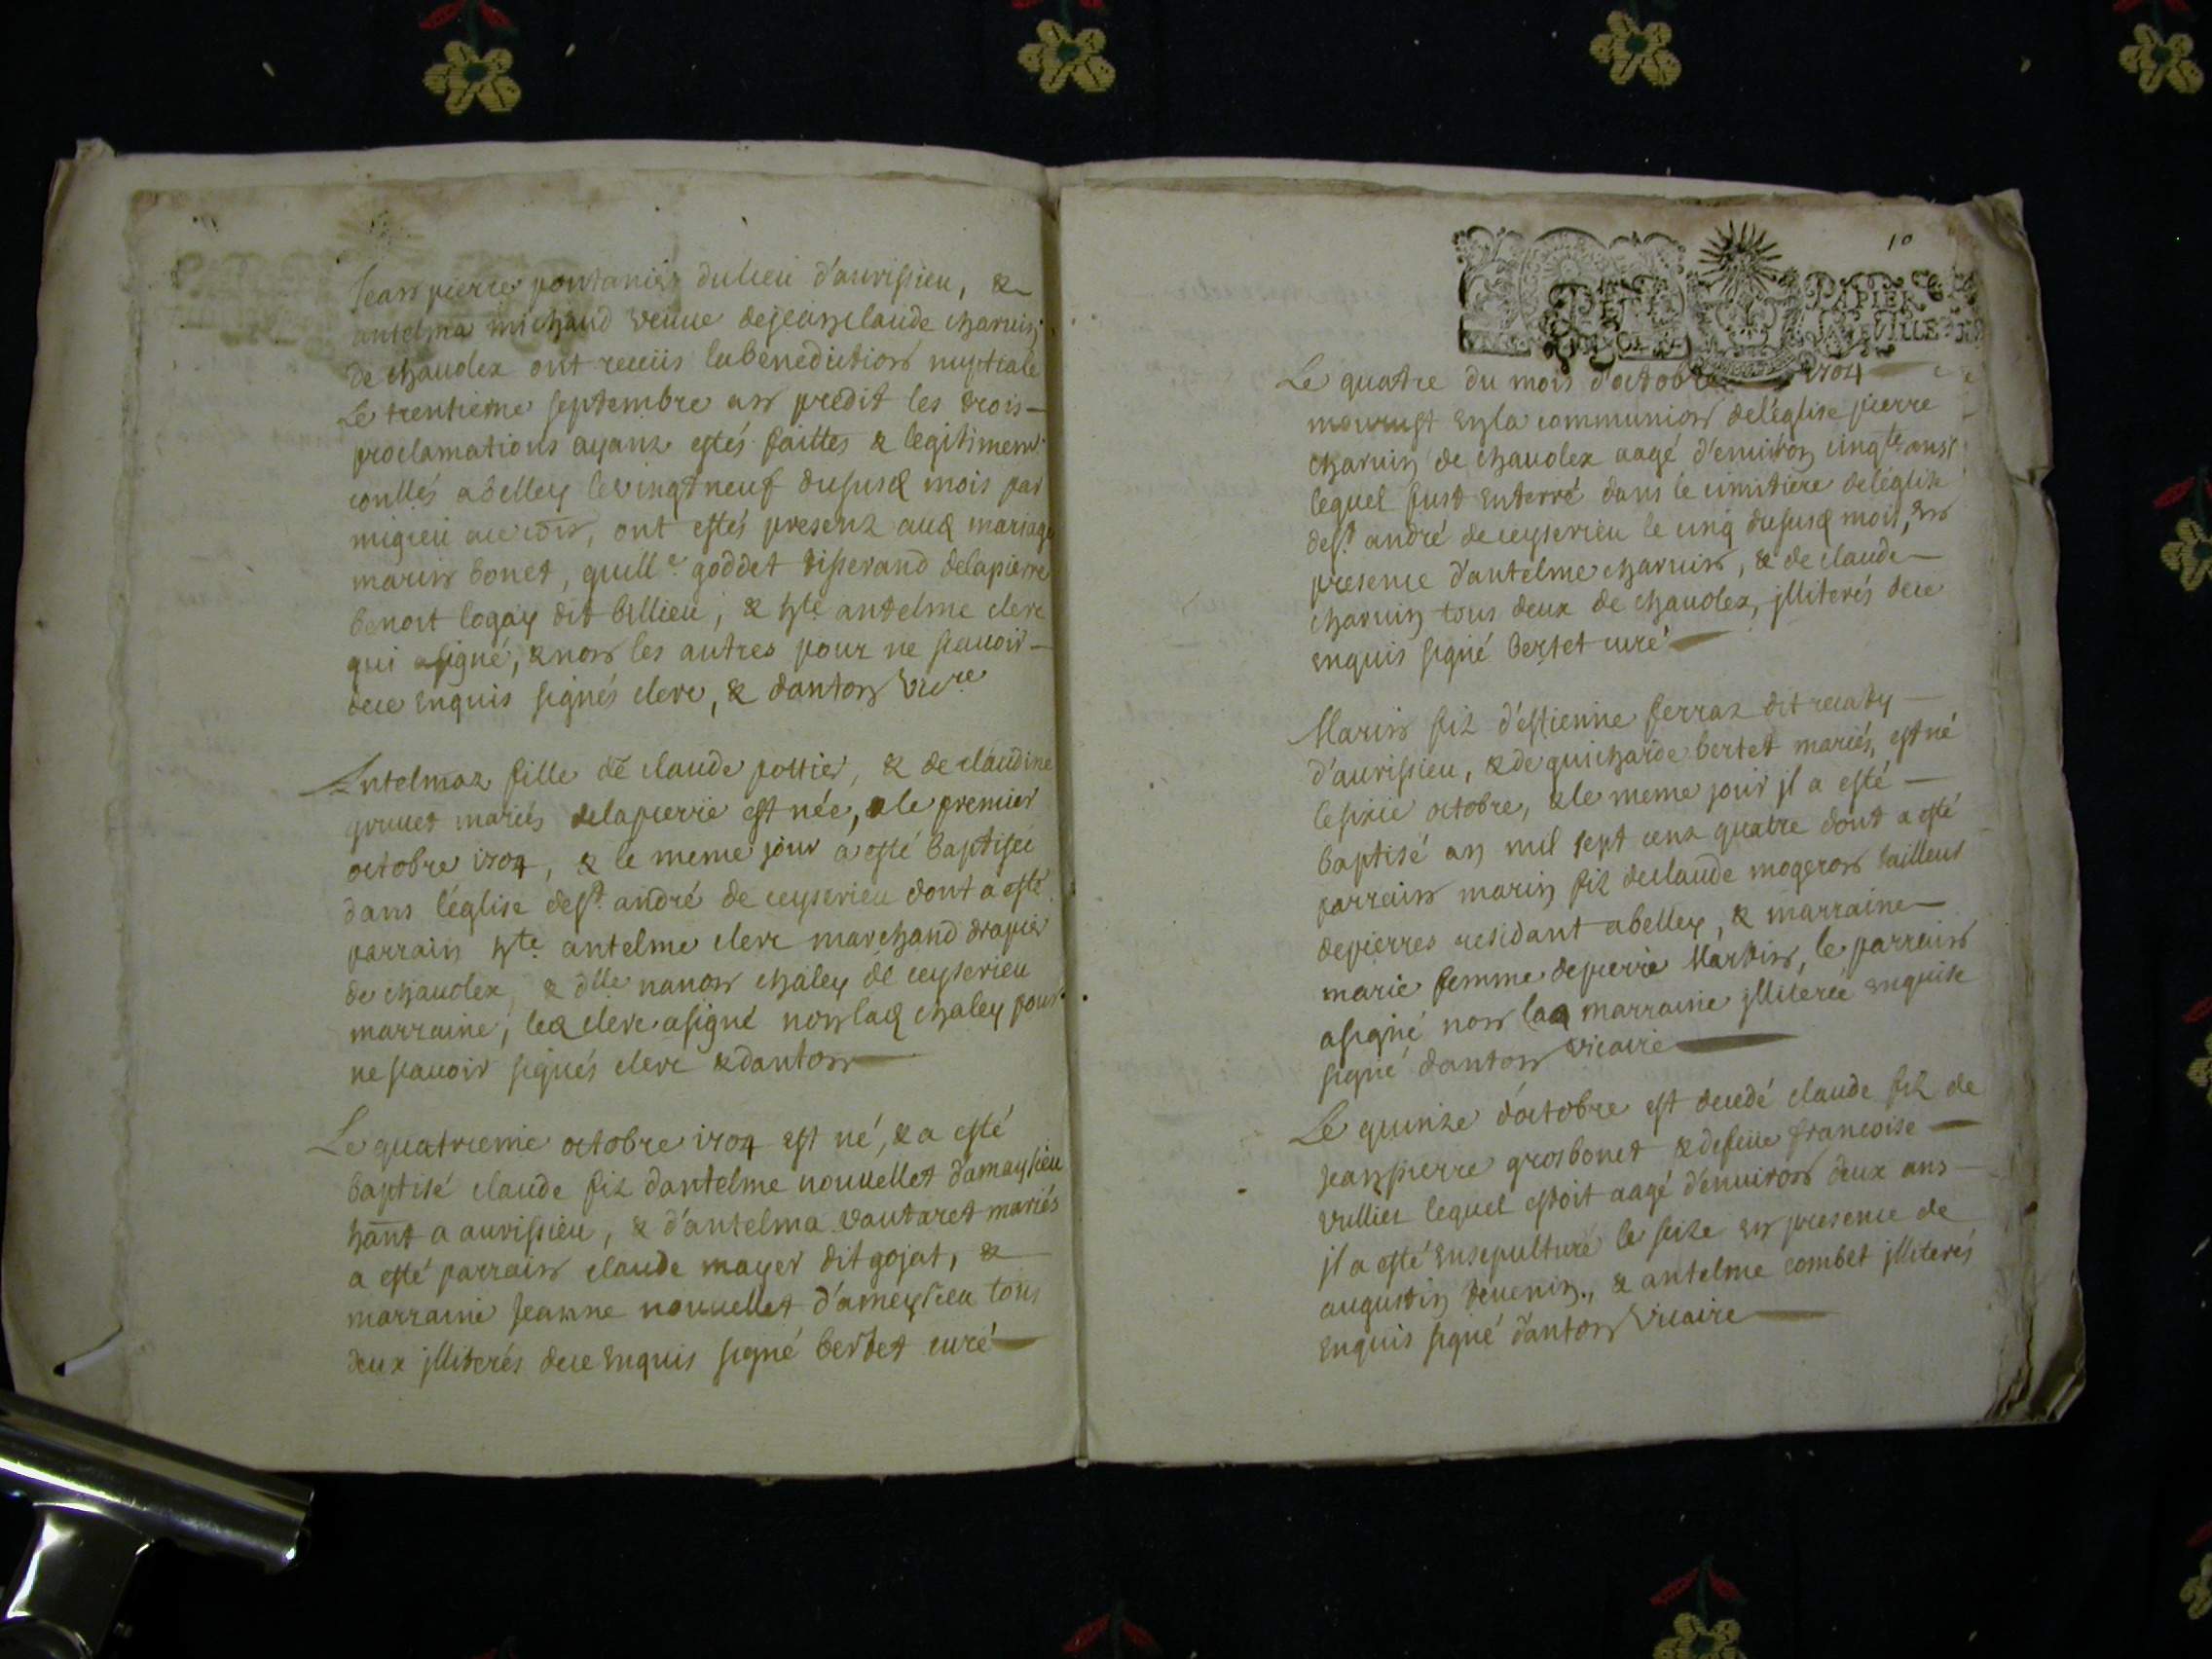 Jean pierre pontanier du lieu d'aurissieu, &
antelma michaud veuue de jean claude charuin
de chaudez ont receüs la benediction nuptiale
Le trentieme septembre an predit les trois
proclamations ayanz estés faittes & legitimem.t
conllés a belley le vingt neuf du susd mois par
migieu, ont estés presenz aud mariage
marin bonet, guill.e goddet tisserand de la pierre
benoit logay dit billieu, & h.te antelme clerc
qui a signé, & non les autres pour ne scauoir
de ce enquis signés clerc, & danton vic.re
Antelmaz fille de claude pottier, & de claudine
gouuet mariés de la pierre est née, le premier
octobre 1704, & le meme jour a esté baptisée
dans l'église de s.t andré de ceyserieu dont a esté
parrain h.te antelme clerc marchand drapier
de chaudez, & d.lle nanon chaley de ceyserieu
marraine, led clerc a signé non lad chaley pour
ne scauoir signés clerc & danton
Le quatrieme octobre 1704 est né, & a esté
baptisé claude filz dantelme nouuellet damaysieu
hant a aurissieu, & d'antelma vautaret mariés
a esté parrain claude mayer dit gojat, &
marraine Jeanne nouuellet d'ameysieu tous
deux illiterés de ce enquis signé bertet curé
10
PAPIER
Le quatre du mois d'octobre 1704
mourust en la communion de l'église pierre
charuin de chaudez aagé d'enuiron cinq.te ans
lequel fust enterré dans le cimitiere de l'église
de s.t andré de ceyserieu le cinq du susd mois, en
presence d'antelme charuin, & de claude
charuin tous deux de chaudez, illiterés de ce
enquis signé bertet curé
Marin filz d'estienne ferraz dit recaty
d'aurissieu, & de guicharde bertet mariés, est né
le sixie octobre, & le meme jour il a esté
baptisé an mil sept cenz quatre dont a esté
parrain marin filz de claude mogeron tailleur
de pierres residant a belley, & marraine
marie femme de pierre Martin, le parrain
a signé non lad marraine illiterée enquise
signé danton vicaire
Le quinze d'octobre est decedé claude filz de
Jean pierre grosbonet & de feüe francoise
vullier lequel estoit aagé d'enuiron deux ans
il a esté ensepulturé le seize en presence de
augustin deuenin, & antelme combet illiterés
enquis signé danton vicaire